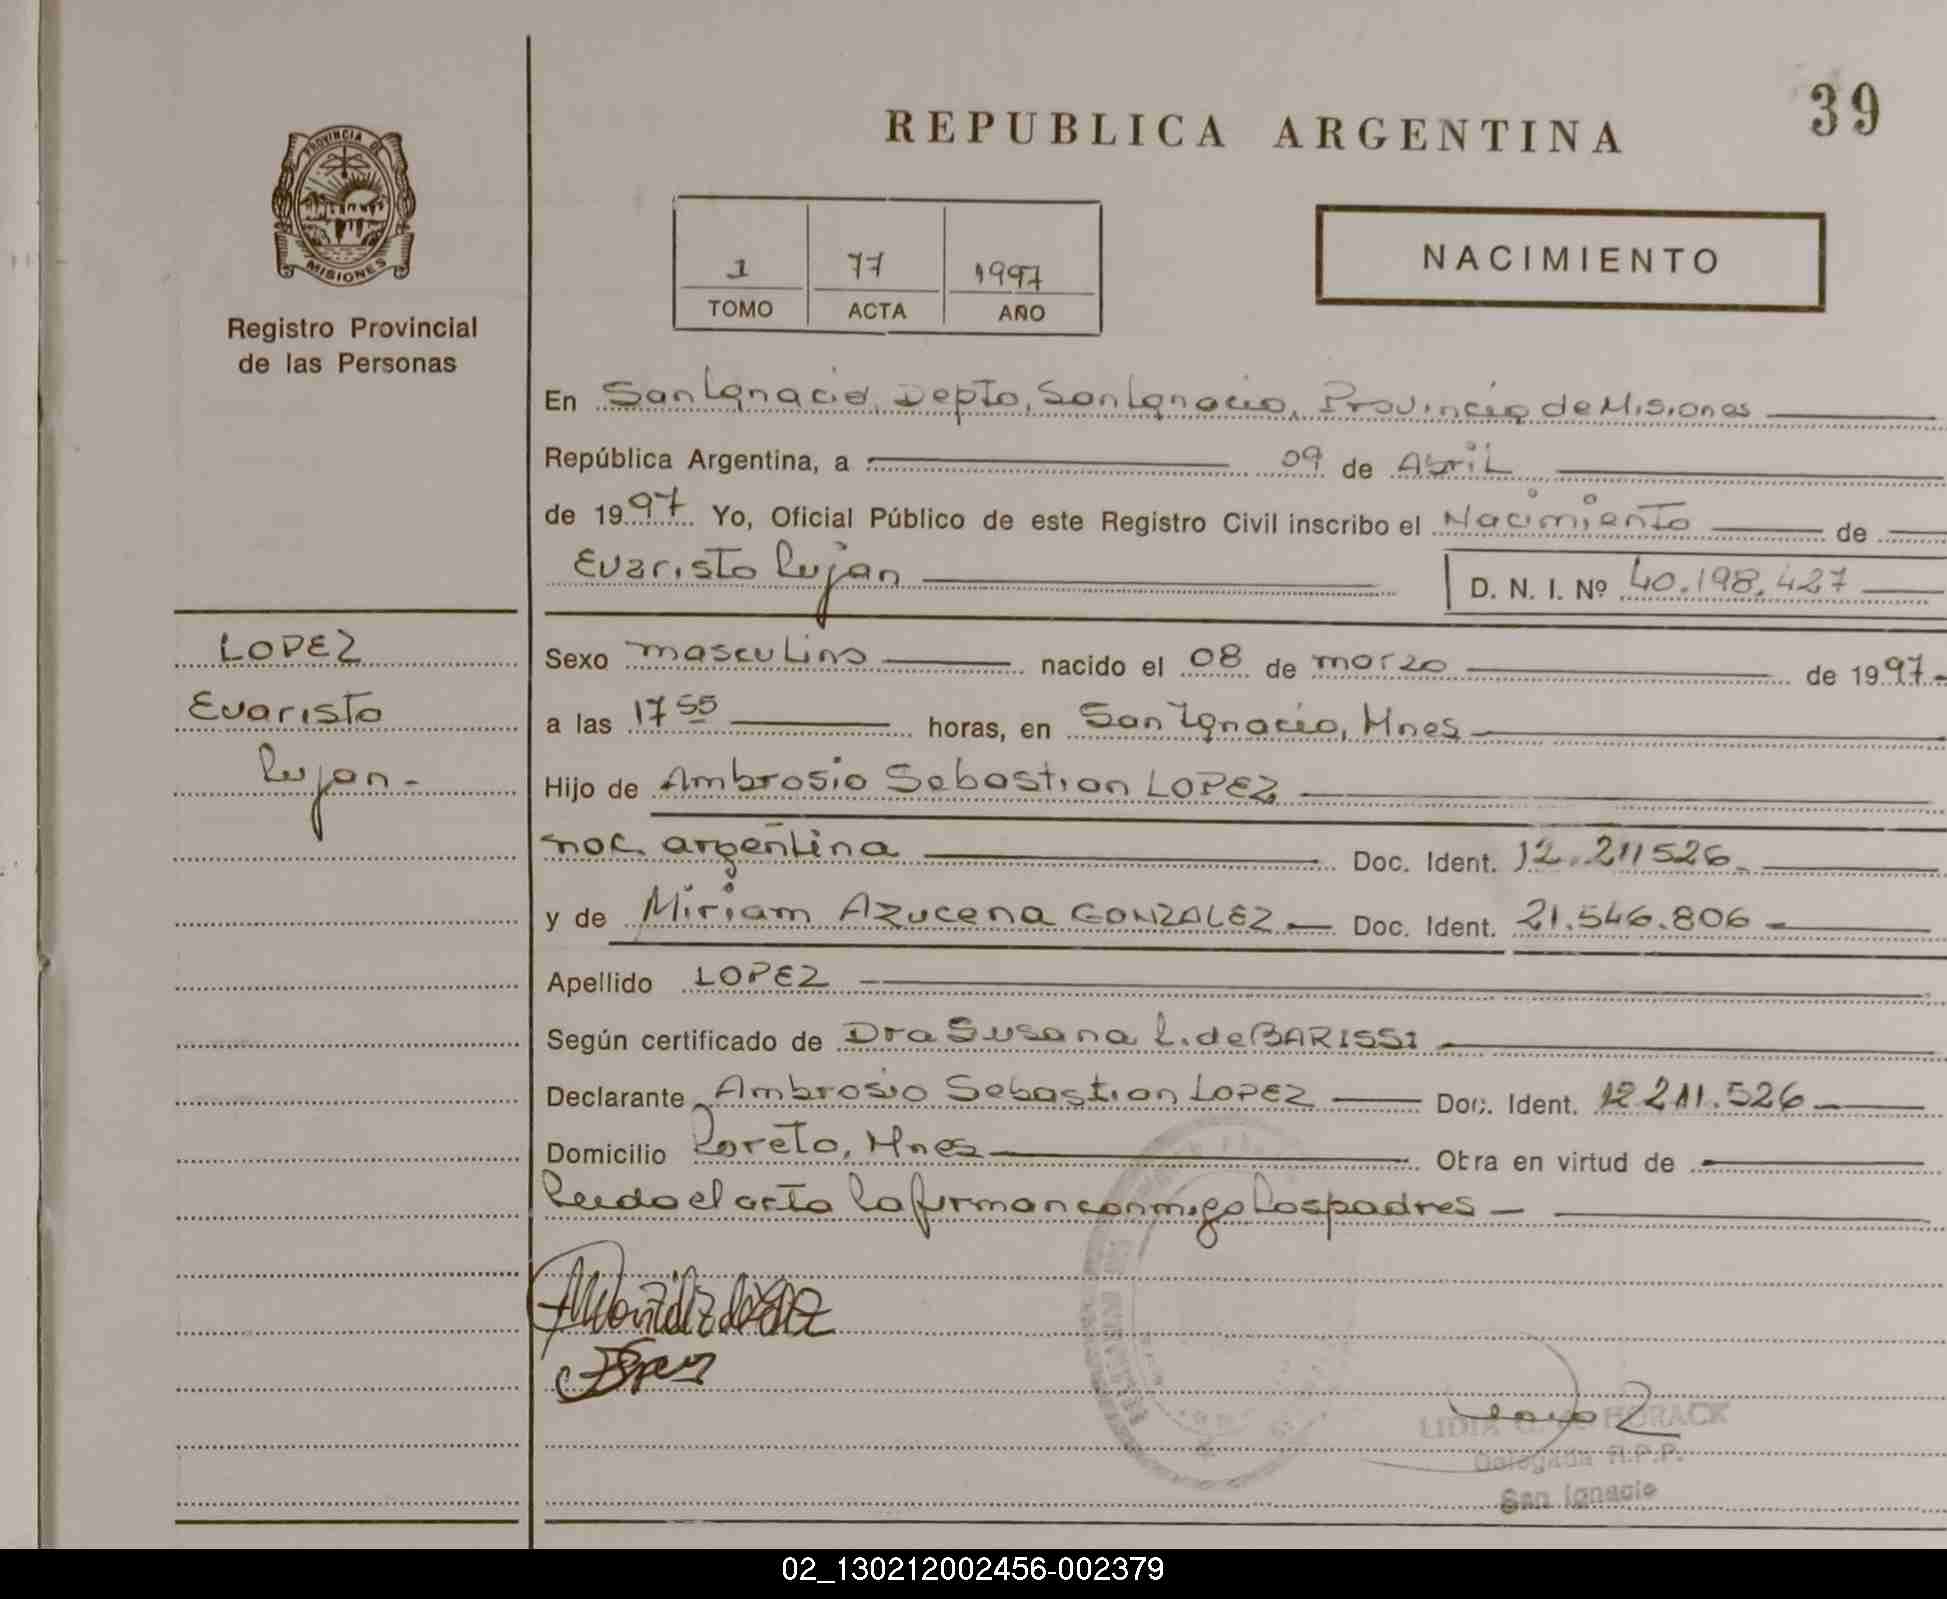 REPUBLICA ARGENTINA
39
PROVINCIA DE
MISIONES
Registro Provincial
de las Personas
1 77 1997
TOMO ACTA AÑO
NACIMIENTO
En San Ignacio, Depto, San Ignacio, Provincia de Misiones
República Argentina, a 09 de Abril
de 1997 Yo, Oficial Público de este Registro Civil inscribo el Nacimiento de
Evaristo Luján D. N. I. Nº 40.198.427
LOPEZ
Evaristo
Lujan.-
Sexo masculino nacido el 08 de marzo de 1997-
a las 17 55 horas, en San Ignacio, Mnes
Hijo de Ambrosio Sebastian LOPEZ
nac. argentina Doc. Ident. 12.211526
y de Miriam Azucena GONZALEZ Doc. Ident. 21.546.806
Apellido LOPEZ
Según certificado de Dra Susana L. de BARISSI
Declarante Ambrosio Sebastian LOPEZ Doc. Ident. 12 211.526
Domicilio Loreto, Mnes Obra en virtud de
Leido el acta la firman conmigo los padres
LIDIA G. HORACK
Delegada R.P.P.
San Ignacio
02_130212002456-002379